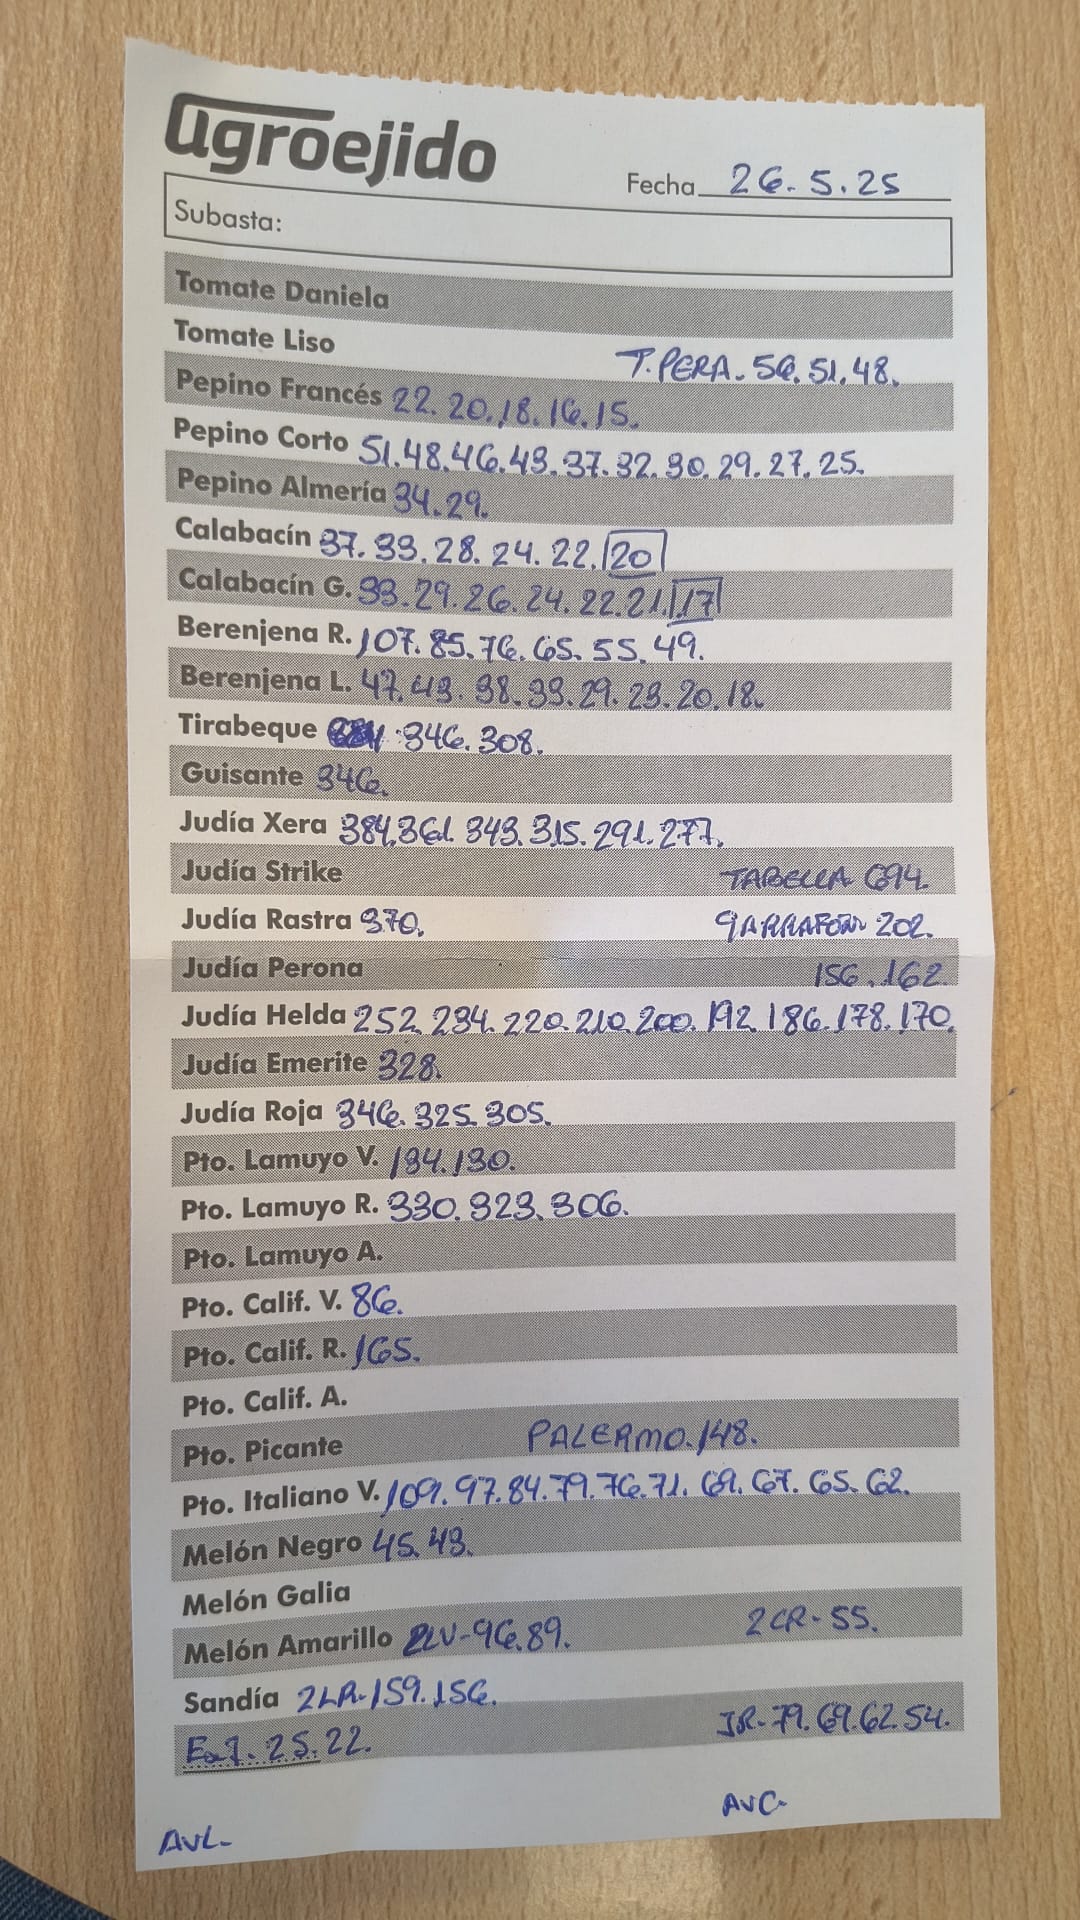 agroejido
Fecha 26.5.25
Subasta:
Tomate Daniela
Tomate Liso
T.PERA. 56. 51. 48.
Pepino Francés 22. 20. 18. 16. 15.
Pepino Corto 51. 48. 46. 43. 37. 32. 30. 29. 27. 25.
Pepino Almería 34. 29.
Calabacín 37. 33. 28. 24. 22. 20
Calabacín G. 33. 29. 26. 24. 22. 21. 17
Berenjena R. 107. 85. 76. 65. 55. 49.
Berenjena L. 47. 43. 38. 33. 29. 23. 20. 18.
Tirabeque 346. 308.
Guisante 346.
Judía Xera 384. 361. 343. 315. 291. 277.
Judía Strike TABELLA 694.
Judía Rastra 370. GARRAFON 202.
Judía Perona 156. 162.
Judía Helda 252. 234. 220. 210. 200. 192. 186. 178. 170.
Judía Emerite 328.
Judía Roja 346. 325. 305.
Pto. Lamuyo V. 134. 130.
Pto. Lamuyo R. 330. 323. 306.
Pto. Lamuyo A.
Pto. Calif. V. 86.
Pto. Calif. R. 165.
Pto. Calif. A.
Pto. Picante PALERMO. 148.
Pto. Italiano V. 109. 97. 84. 79. 76. 71. 69. 67. 65. 62.
Melón Negro 45. 43.
Melón Galia
Melón Amarillo 2LV-96. 89. 2CR-55.
Sandía 2LR-159. 156.
25. 22. JR-79. 69. 62. 54.
AVL- AVC-